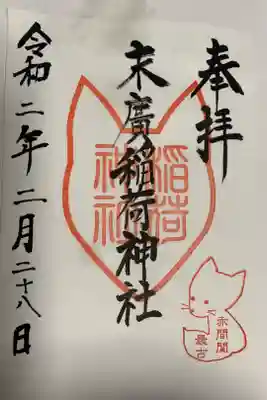 奉拝
末廣稲荷神社
稲荷
神社
令和二年二月二十八日
赤間關
最古